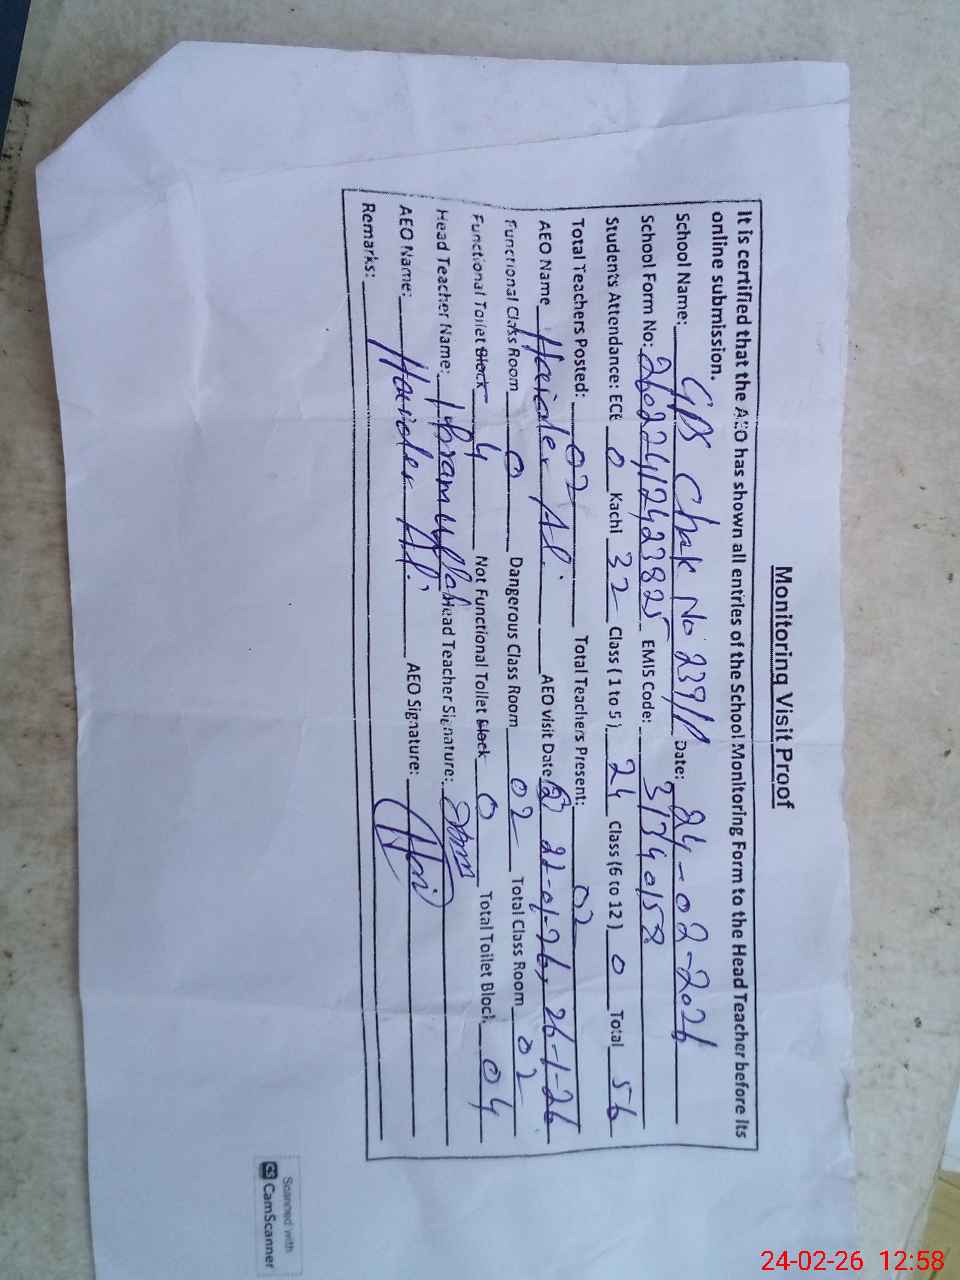 Monitoring Visit Proof
It is certified that the AEO has shown all entries of the School Monitoring Form to the Head Teacher before its
online submission.
School Name: GPS Chak No 239/P Date: 24-02-2026
School Form No: 26022412423825 EMIS Code: 31340158
Students Attendance: ECE 0 Kachi 32 Class ( 1 to 5 ) 24 Class (6 to 12 ) 0 Total 56
Total Teachers Posted: 02 Total Teachers Present: 02
AEO Name Haider Ali AEO visit Date (2) 22-01-26, 26-1-26
Functional Class Room 0 Dangerous Class Room 02 Total Class Room 02
Functional Toilet Block 4 Not Functional Toilet Block 0 Total Toilet Block 04
Head Teacher Name: Ikramullah Head Teacher Signature:
AEO Name: Haider Ali AEO Signature:
Remarks:
Scanned with
CamScanner
24-02-26 12:58